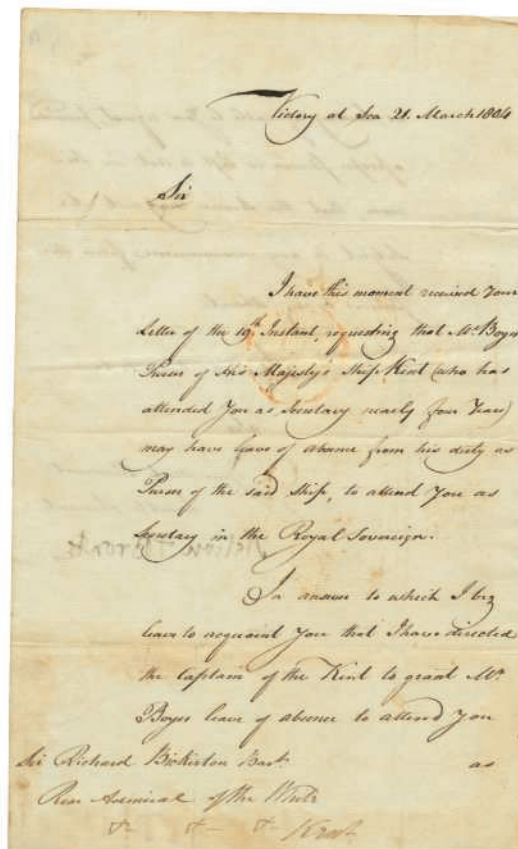 Victory at Sea 21. March 1804
Sir
I have this moment received Your
Letter of the 19th Instant, requesting that Mr. Boyes
Purser of His Majesty's Ship Kent (who has
attended You as Secretary nearly four Years)
may have leave of absence from his duty as
Purser of the said Ship, to attend You as
Secretary in the Royal Sovereign.
In answer to which I beg
leave to acquaint You that I have directed
the Captain of the Kent to grant Mr.
Boyes leave of absence to attend You
as
Sir Richard Bickerton Bart.
Rear Admiral of the White
&c &c &c Kent